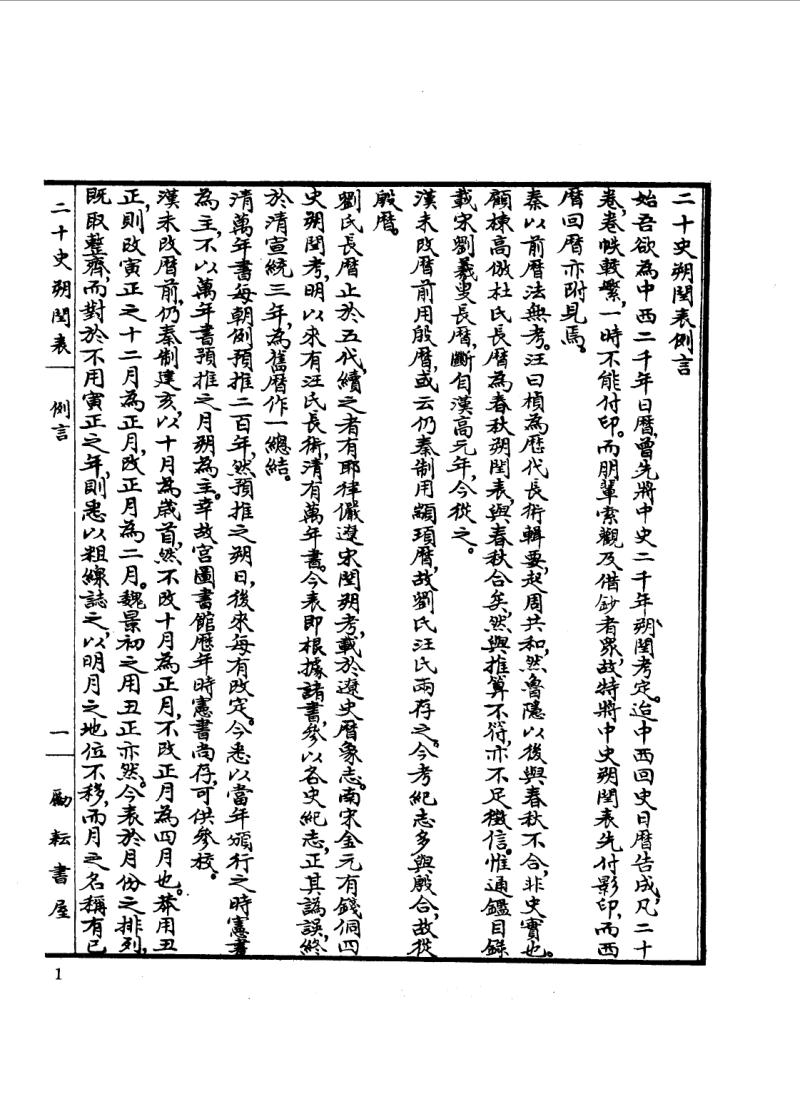 二十史朔閏表例言
始吾欲為中西二千年日曆,曾先將中史二千年朔、閏考定。迨中西回史日曆告成,凡二十
卷,卷帙較繁,一時不能付印。而朋輩索觀及借鈔者眾,故特將中史朔閏表先付影印,而西
曆回曆亦附見焉。
秦以前曆法無考。汪曰楨為歷代長術輯要,起周共和,然魯隱以後與春秋不合,非史實也。
顧棟高倣杜氏長曆為春秋朔閏表,與春秋合矣,然與推算不符,亦不足徵信。惟通鑑目錄
載宋劉羲叟長曆,斷自漢高元年,今從之。
漢未改曆前用殷曆,或云仍秦制用顓頊曆,故劉氏汪氏兩存之。今考紀志多與殷合,故從
殷曆。
劉氏長曆止於五代,續之者有耶律儼遼宋閏朔考,載於遼史曆象志。南宋金元有錢侗四
史朔閏考,明以來有汪氏長術,清有萬年書。今表即根據諸書,參以各史紀志,正其譌誤,終
於清宣統三年,為舊曆作一總結。
清萬年書每朝例預推二百年,然預推之朔日,後來每有改定。今悉以當年頒行之時憲書
為主,不以萬年書預推之月朔為主。幸故宮圖書館歷年時憲書尚存,可供參校。
漢未改曆前,仍秦制建亥,以十月為歲首,然不改十月為正月,不改正月為四月也。莽用丑
正,則改寅正之十二月為正月,改正月為二月。魏景初之用丑正亦然。今表於月份之排列,
既取整齊,而對於不用寅正之年,則悉以粗線誌之,以明月之地位不移,而月之名稱有已
二十史朔閏表 例言 一 勵耘書屋
1